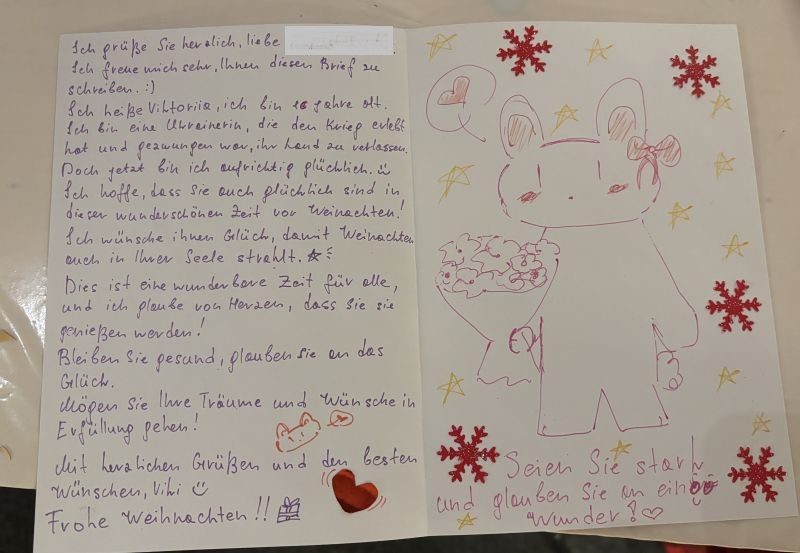 Ich grüße Sie herzlich, liebe
Ich freue mich sehr, Ihnen diesen Brief zu
schreiben. :)
Ich heiße Viktoriia, ich bin 16 Jahre alt.
Ich bin eine Ukrainerin, die den Krieg erlebt
hat und gezwungen war, ihr Land zu verlassen.
Doch jetzt bin ich aufrichtig glücklich.
Ich hoffe, dass Sie auch glücklich sind in
dieser wunderschönen Zeit vor Weinachten!
Ich wünsche ihnen Glück, damit Weinachten
auch in Ihrer Seele strahlt.
Dies ist eine wunderbare Zeit für alle,
und ich glaube von Herzen, dass Sie sie
genießen werden!
Bleiben Sie gesund, glauben Sie an das
Glück.
Mögen Sie Ihre Träume und Wünsche in
Erfüllung gehen!
Mit herzlichen Grüßen und den besten
Wünschen, Viki
Frohe Weihnachten!!
Seien Sie stark
und glauben Sie an ein
Wunder!